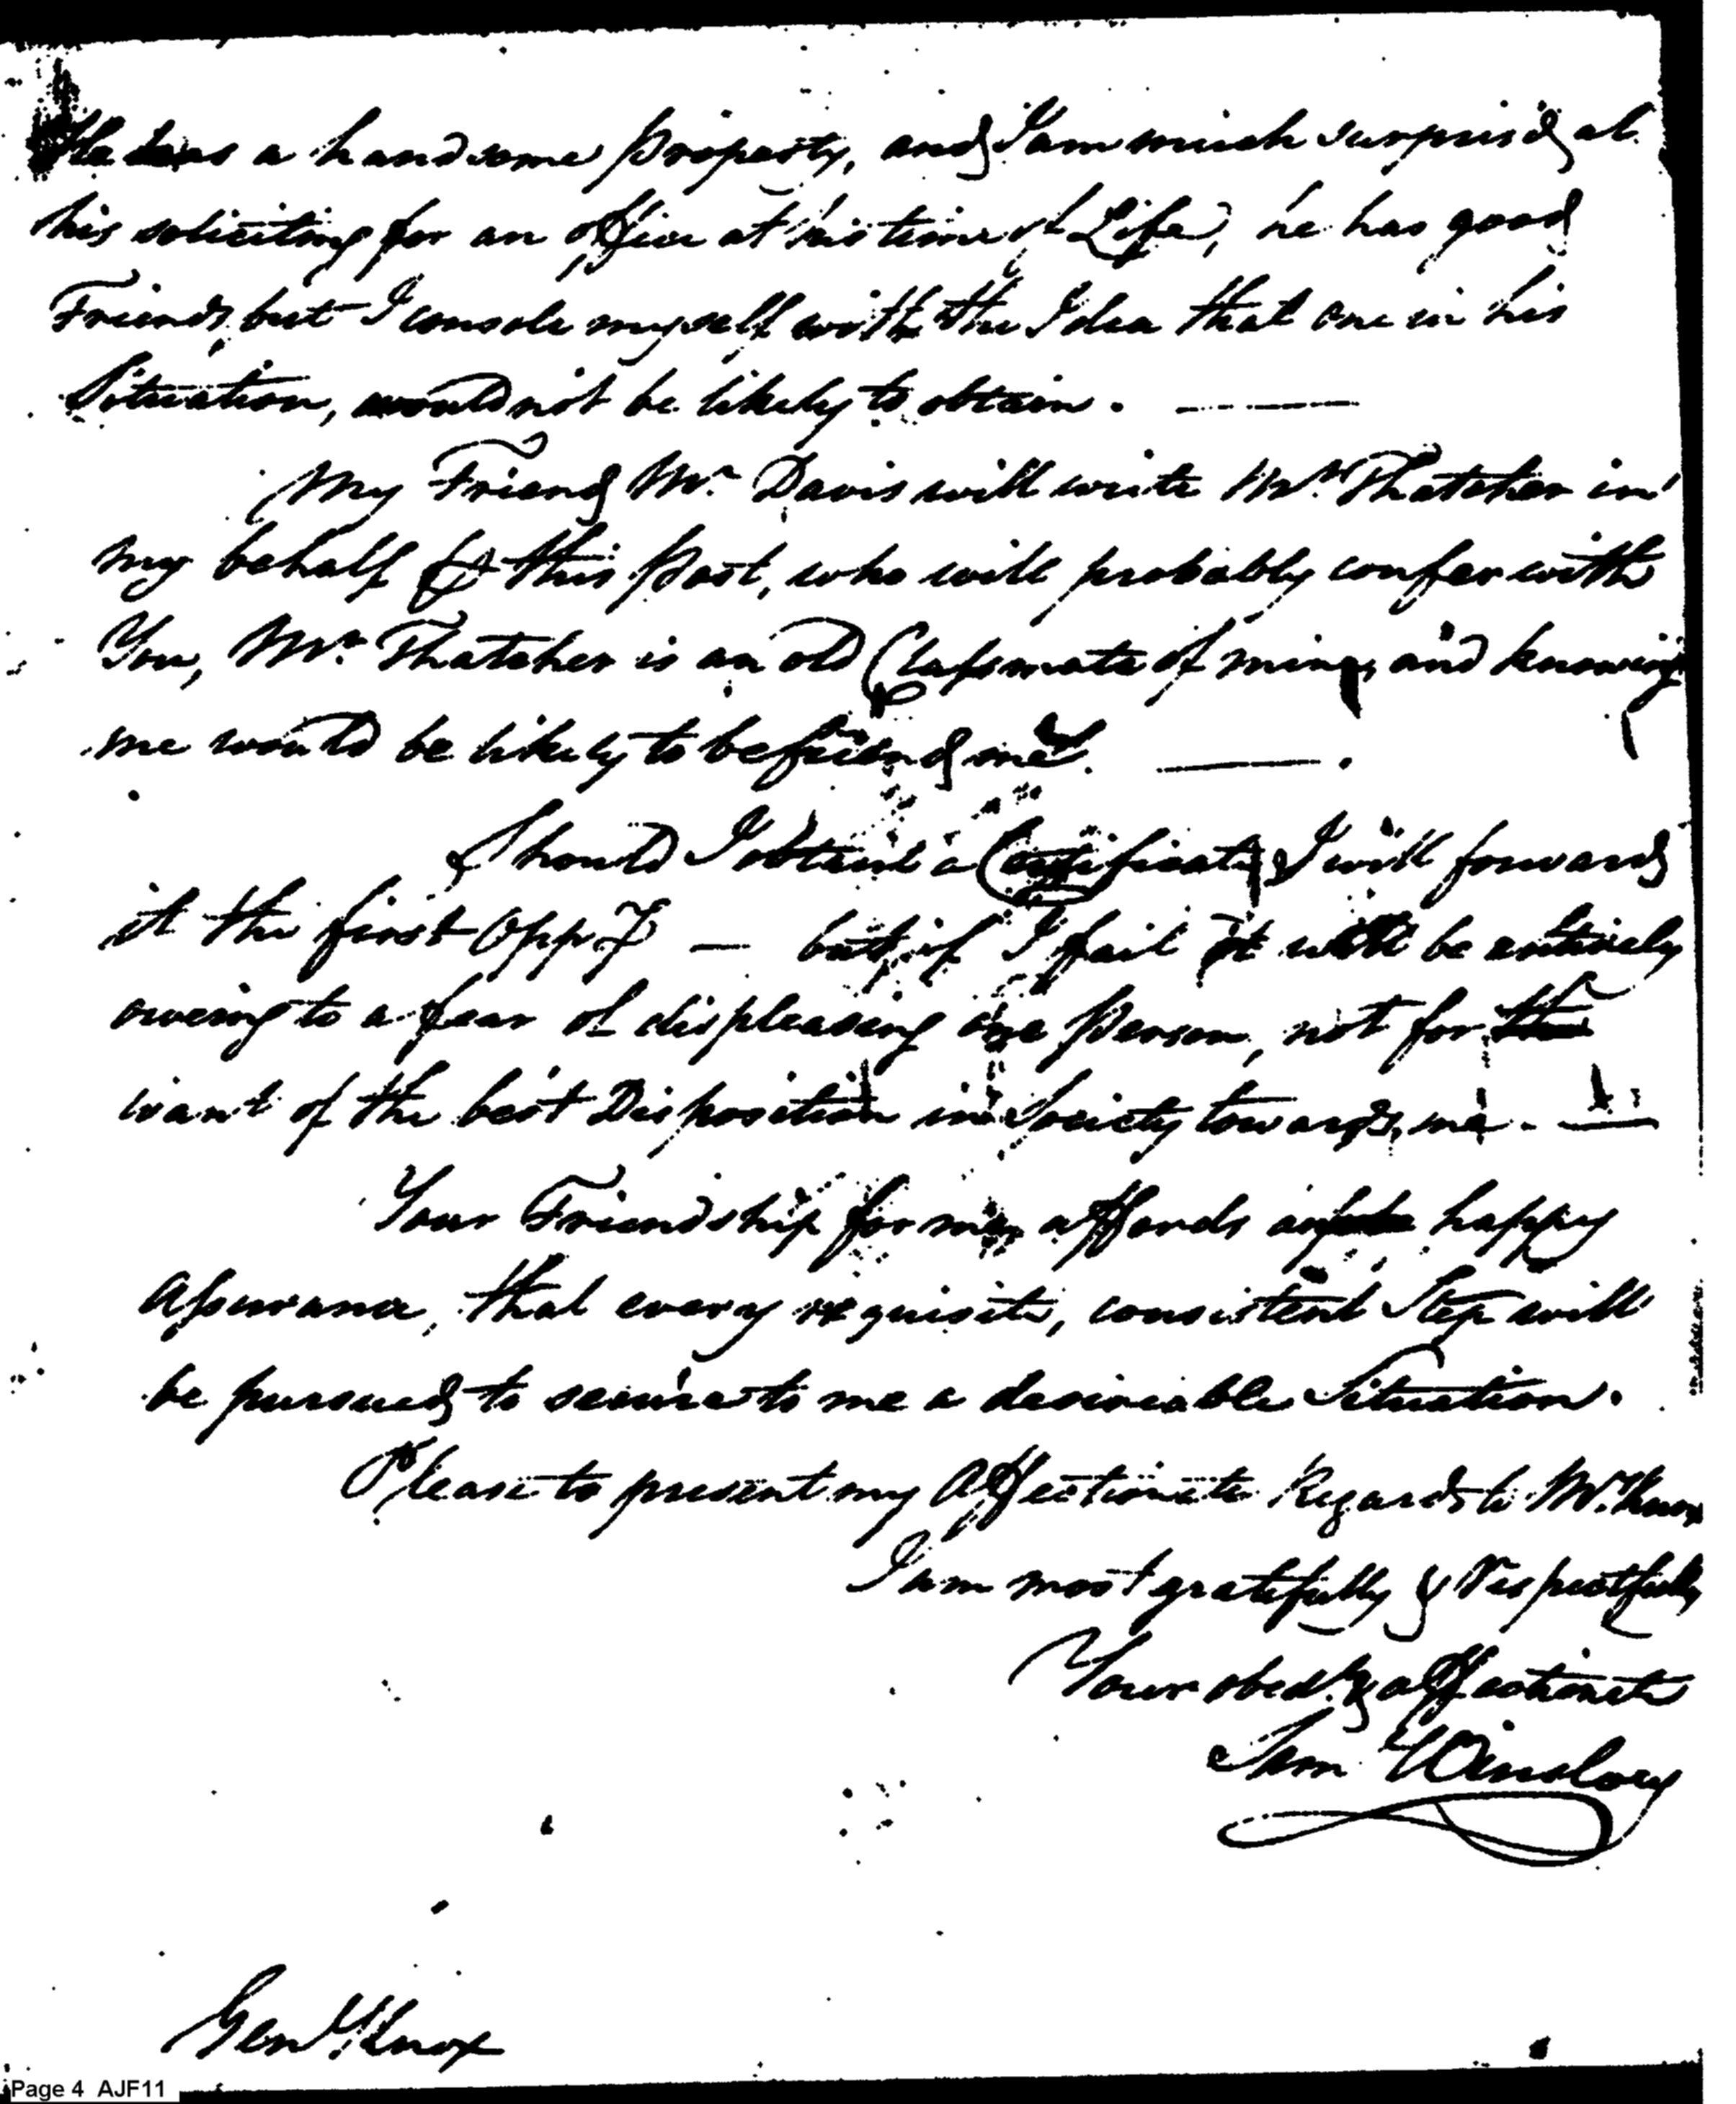 He has a handsome property, and I am much surprised at
his soliciting for an office at his time of Life, he has good
Friends, but I console myself with the Idea that one in his
Situation, would not be likely to obtain. ———
My Friend Mr. Davis will write Mr. Thatcher in
my behalf by this Post, who will probably confer with
You, Mr. Thatcher is an old Classmate of mine, and knowing
me would be likely to befriend me. ———
Should I obtain a Certificate, I will forward
it the first Oppy — but if I fail it will be entirely
owing to a fear of displeasing one person, not for the
want of the best Disposition in Society towards me. —
Your Friendship for me, affords happy
Assurance, that every requisite, consistent Step will
be pursued to secure to me a desireable Situation.
Please to present my Affectionate Regards to Mrs. Knox
I am most gratefully & respectfully
Your obedt. & affectionate
Sam Winslow
Genl. Knox
Page 4 AJF11